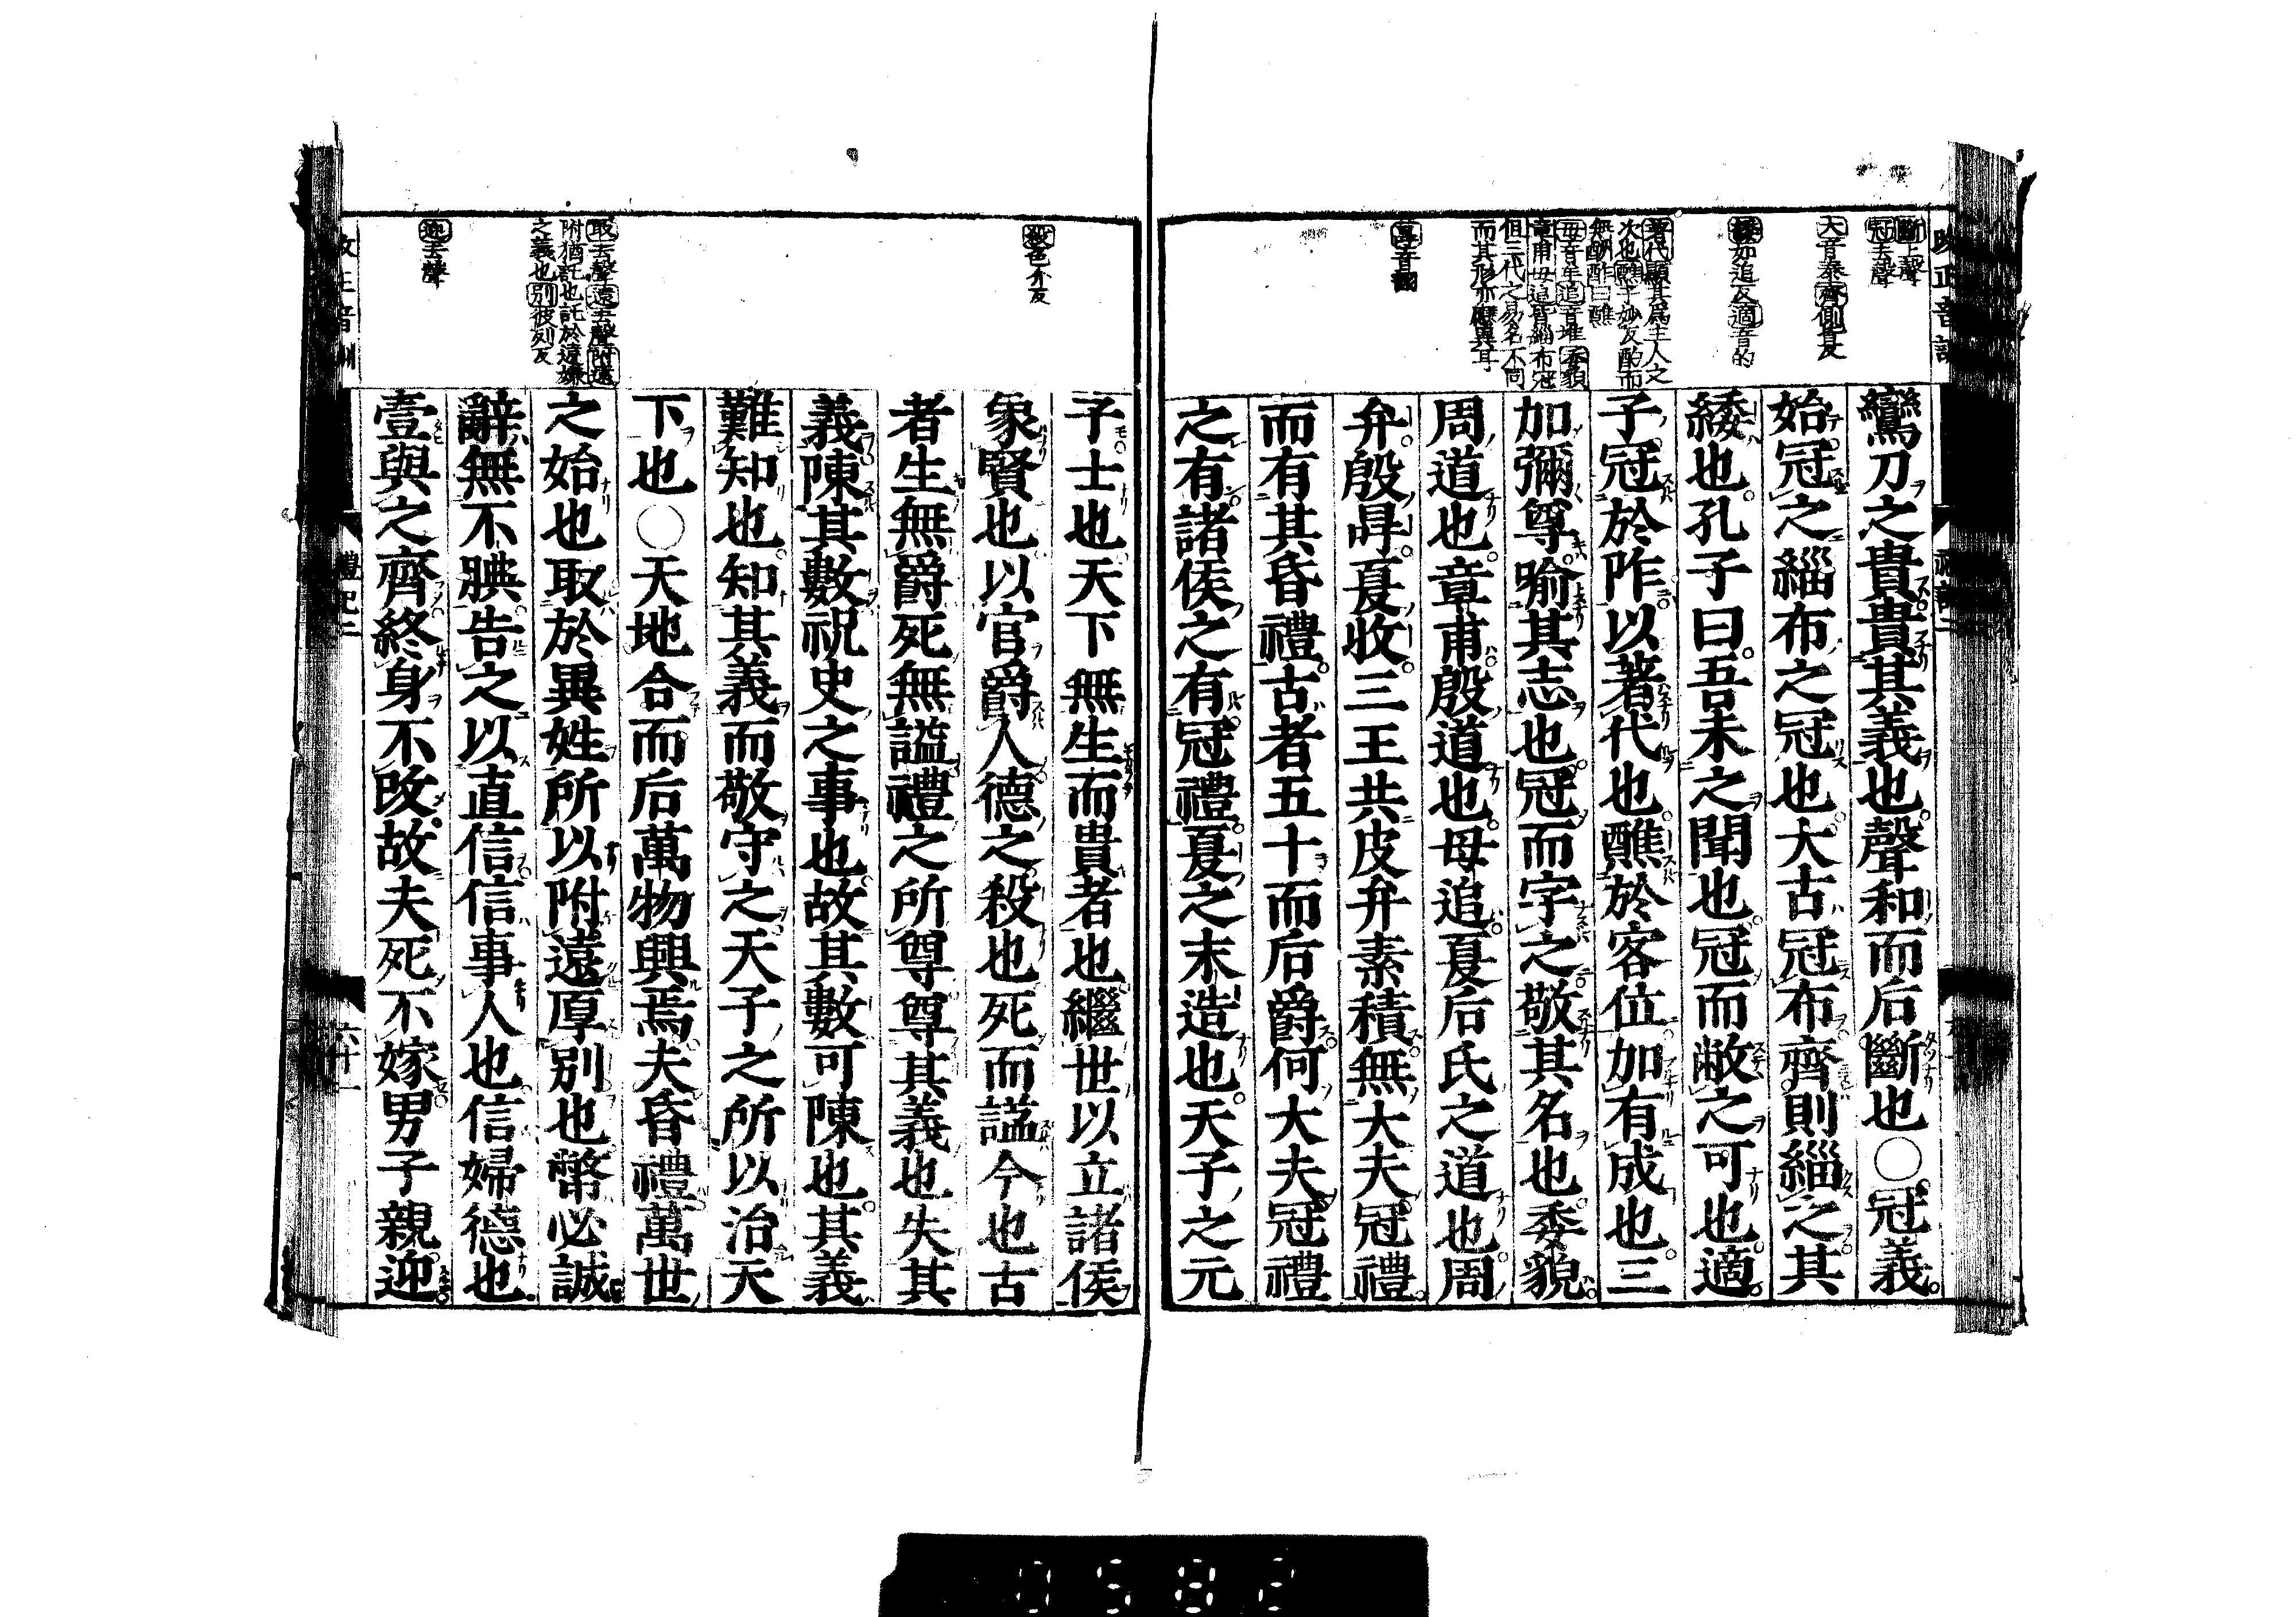 斷上聲
冠去聲
大音泰齊側皆反
緌如追反適音的
著代顯其爲主人之
次也醮子妙反酌而
無酬酢曰醮
毋音牟追音堆委貌
章甫毋追皆緇布冠
但三代之易名不同
而其形亦應異耳
鸞刀之貴貴其義也聲和而后斷也○冠義
始冠之緇布之冠也大古冠布齊則緇之其
緌也孔子曰吾未之聞也冠而敝之可也適
子冠於阼以著代也醮於客位加有成也三
加彌尊喻其志也冠而字之敬其名也委貌
周道也章甫殷道也毋追夏后氏之道也周
弁殷冔夏收三王共皮弁素積無大夫冠禮
而有其昏禮古者五十而后爵何大夫冠禮
之有諸侯之有冠禮夏之末造也天子之元
殺色介反
取去聲遠去聲附遠
附猶託也託於遠嫌
之義也別彼列反
迎去聲
子士也天下無生而貴者也繼世以立諸侯
象賢也以官爵人德之殺也死而謚今也古
者生無爵死無謚禮之所尊尊其義也失其
義陳其數祝史之事也故其數可陳也其義
難知也知其義而敬守之天子之所以治天
下也○天地合而后萬物興焉夫昏禮萬世
之始也取於異姓所以附遠厚別也幣必誠
辭無不腆告之以直信信事人也信婦德也
壹與之齊終身不改故夫死不嫁男子親迎
禮記二
六十一
0582